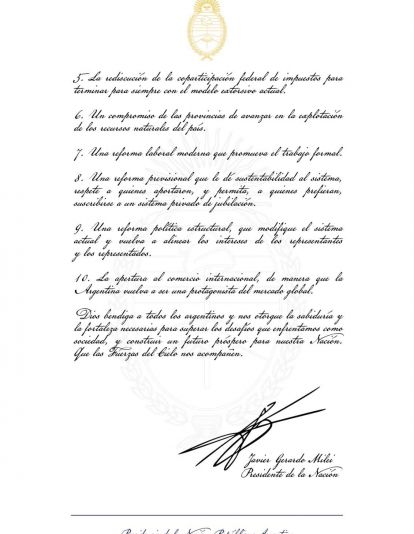 5. La rediscución de la coparticipación federal de impuestos para
terminar para siempre con el modelo extorsivo actual.
6. Un compromiso de las provincias de avanzar en la explotación
de los recursos naturales del país.
7. Una reforma laboral moderna que promueva el trabajo formal.
8. Una reforma previsional que le dé sustentabilidad al sistema,
respete a quienes aportaron, y permita, a quienes prefieran,
suscribirse a un sistema privado de jubilación.
9. Una reforma política estructural, que modifique el sistema
actual y vuelva a alinear los intereses de los representantes
y los representados.
10. La apertura al comercio internacional, de manera que la
Argentina vuelva a ser una protagonista del mercado global.
Dios bendiga a todos los argentinos y nos otorgue la sabiduría y
la fortaleza necesarias para superar los desafíos que enfrentamos como
sociedad, y construir un futuro próspero para nuestra Nación.
Que las Fuerzas del Cielo nos acompañen.
Javier Gerardo Milei
Presidente de la Nación